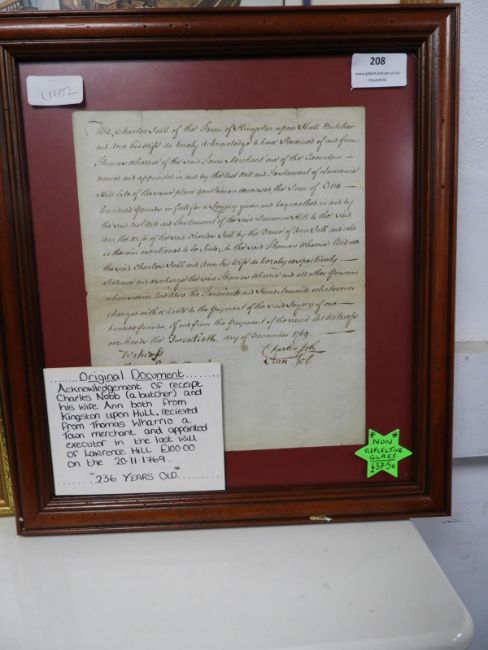 U102
208
www.gilbert-baitson.co.uk
Household
We Charles Jobb of the Town of Kingston upon Hull Butcher
and Ann his Wife do hereby Acknowledge to have Received of and from
Thomas Wharrie of the said Town Merchant one of the Executors
named and appointed in and by the last Will and Testament of Lawrence
Hill late of the same place Gentleman deceased the Sum of One
hundred Pounds in full for a Legacy given and bequeathed in and by
the said last Will and Testament of the said Lawrence Hill to the said
Ann the Wife of the said Charles Jobb by the Name of Ann Jobb and who
is therein mentioned to be Sister to the said Thomas Wharrie And we
the said Charles Jobb and Ann his Wife do hereby respectively
Release and discharge the said Thomas Wharrie and all other Persons
whomsoever And also the Tenements and Hereditaments whatsoever
charged with or liable to the Payment of the said Legacy of one
hundred Pounds, of and from the Payment of the same As witness
our hands the Twentieth day of November 1769
Witness
Charles Job
Ann Job
Original Document
Acknowledgement of receipt
Charles Nobb (a butcher) and
his wife Ann both from
Kingston upon Hull, recieved
from Thomas Wharrio a
Town merchant and appointed
executor in the last will
of Lawrence Hill £100:00
on the 20.11.1769.
"236 YEARS OLD"
NON
REFLECTIVE
GLASS
£57.50